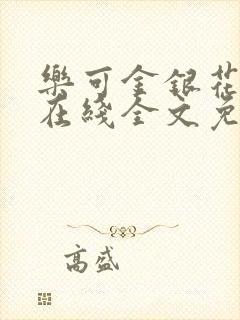 樂可金銀花
在綫全文免
高盛